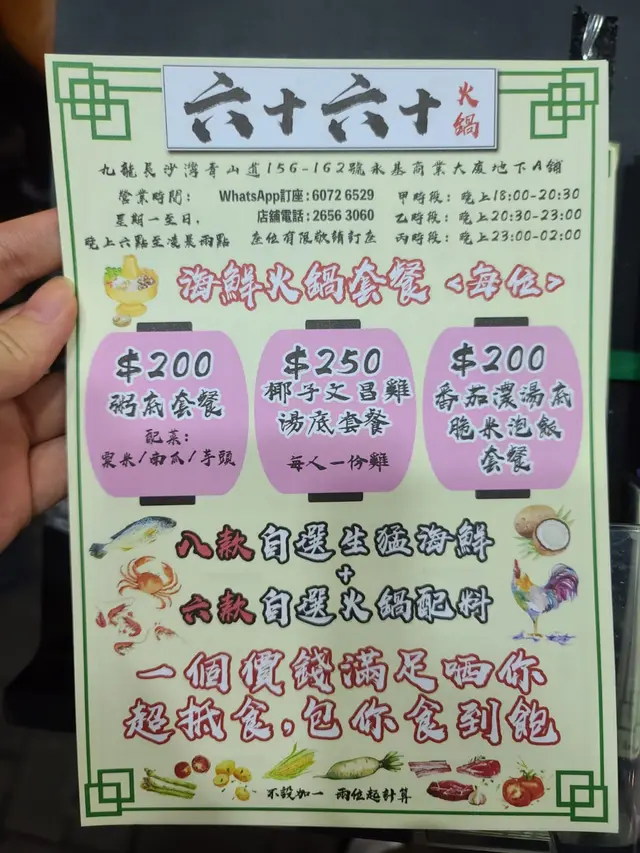 六十六十火鍋
九龍長沙灣青山道156-162號永基商業大廈地下A舖
營業時間:
星期一至日,
晚上六點至淩晨兩點
WhatsApp訂座:6072 6529
店舖電話:2656 3060
座位有限敬請訂座
甲時段: 晚上18:00-20:30
乙時段: 晚上20:30-23:00
丙時段: 晚上23:00-02:00
海鮮火鍋套餐 <每位>
$200
粥底套餐
配菜:
粟米/南瓜/芋頭
$250
椰子文昌雞
湯底套餐
每人一份雞
$200
番茄濃湯底
脆米泡飯
套餐
八款自選生猛海鮮
+
六款自選火鍋配料
一個價錢滿足哂你
超抵食,包你食到飽
不設加一 兩位起計算